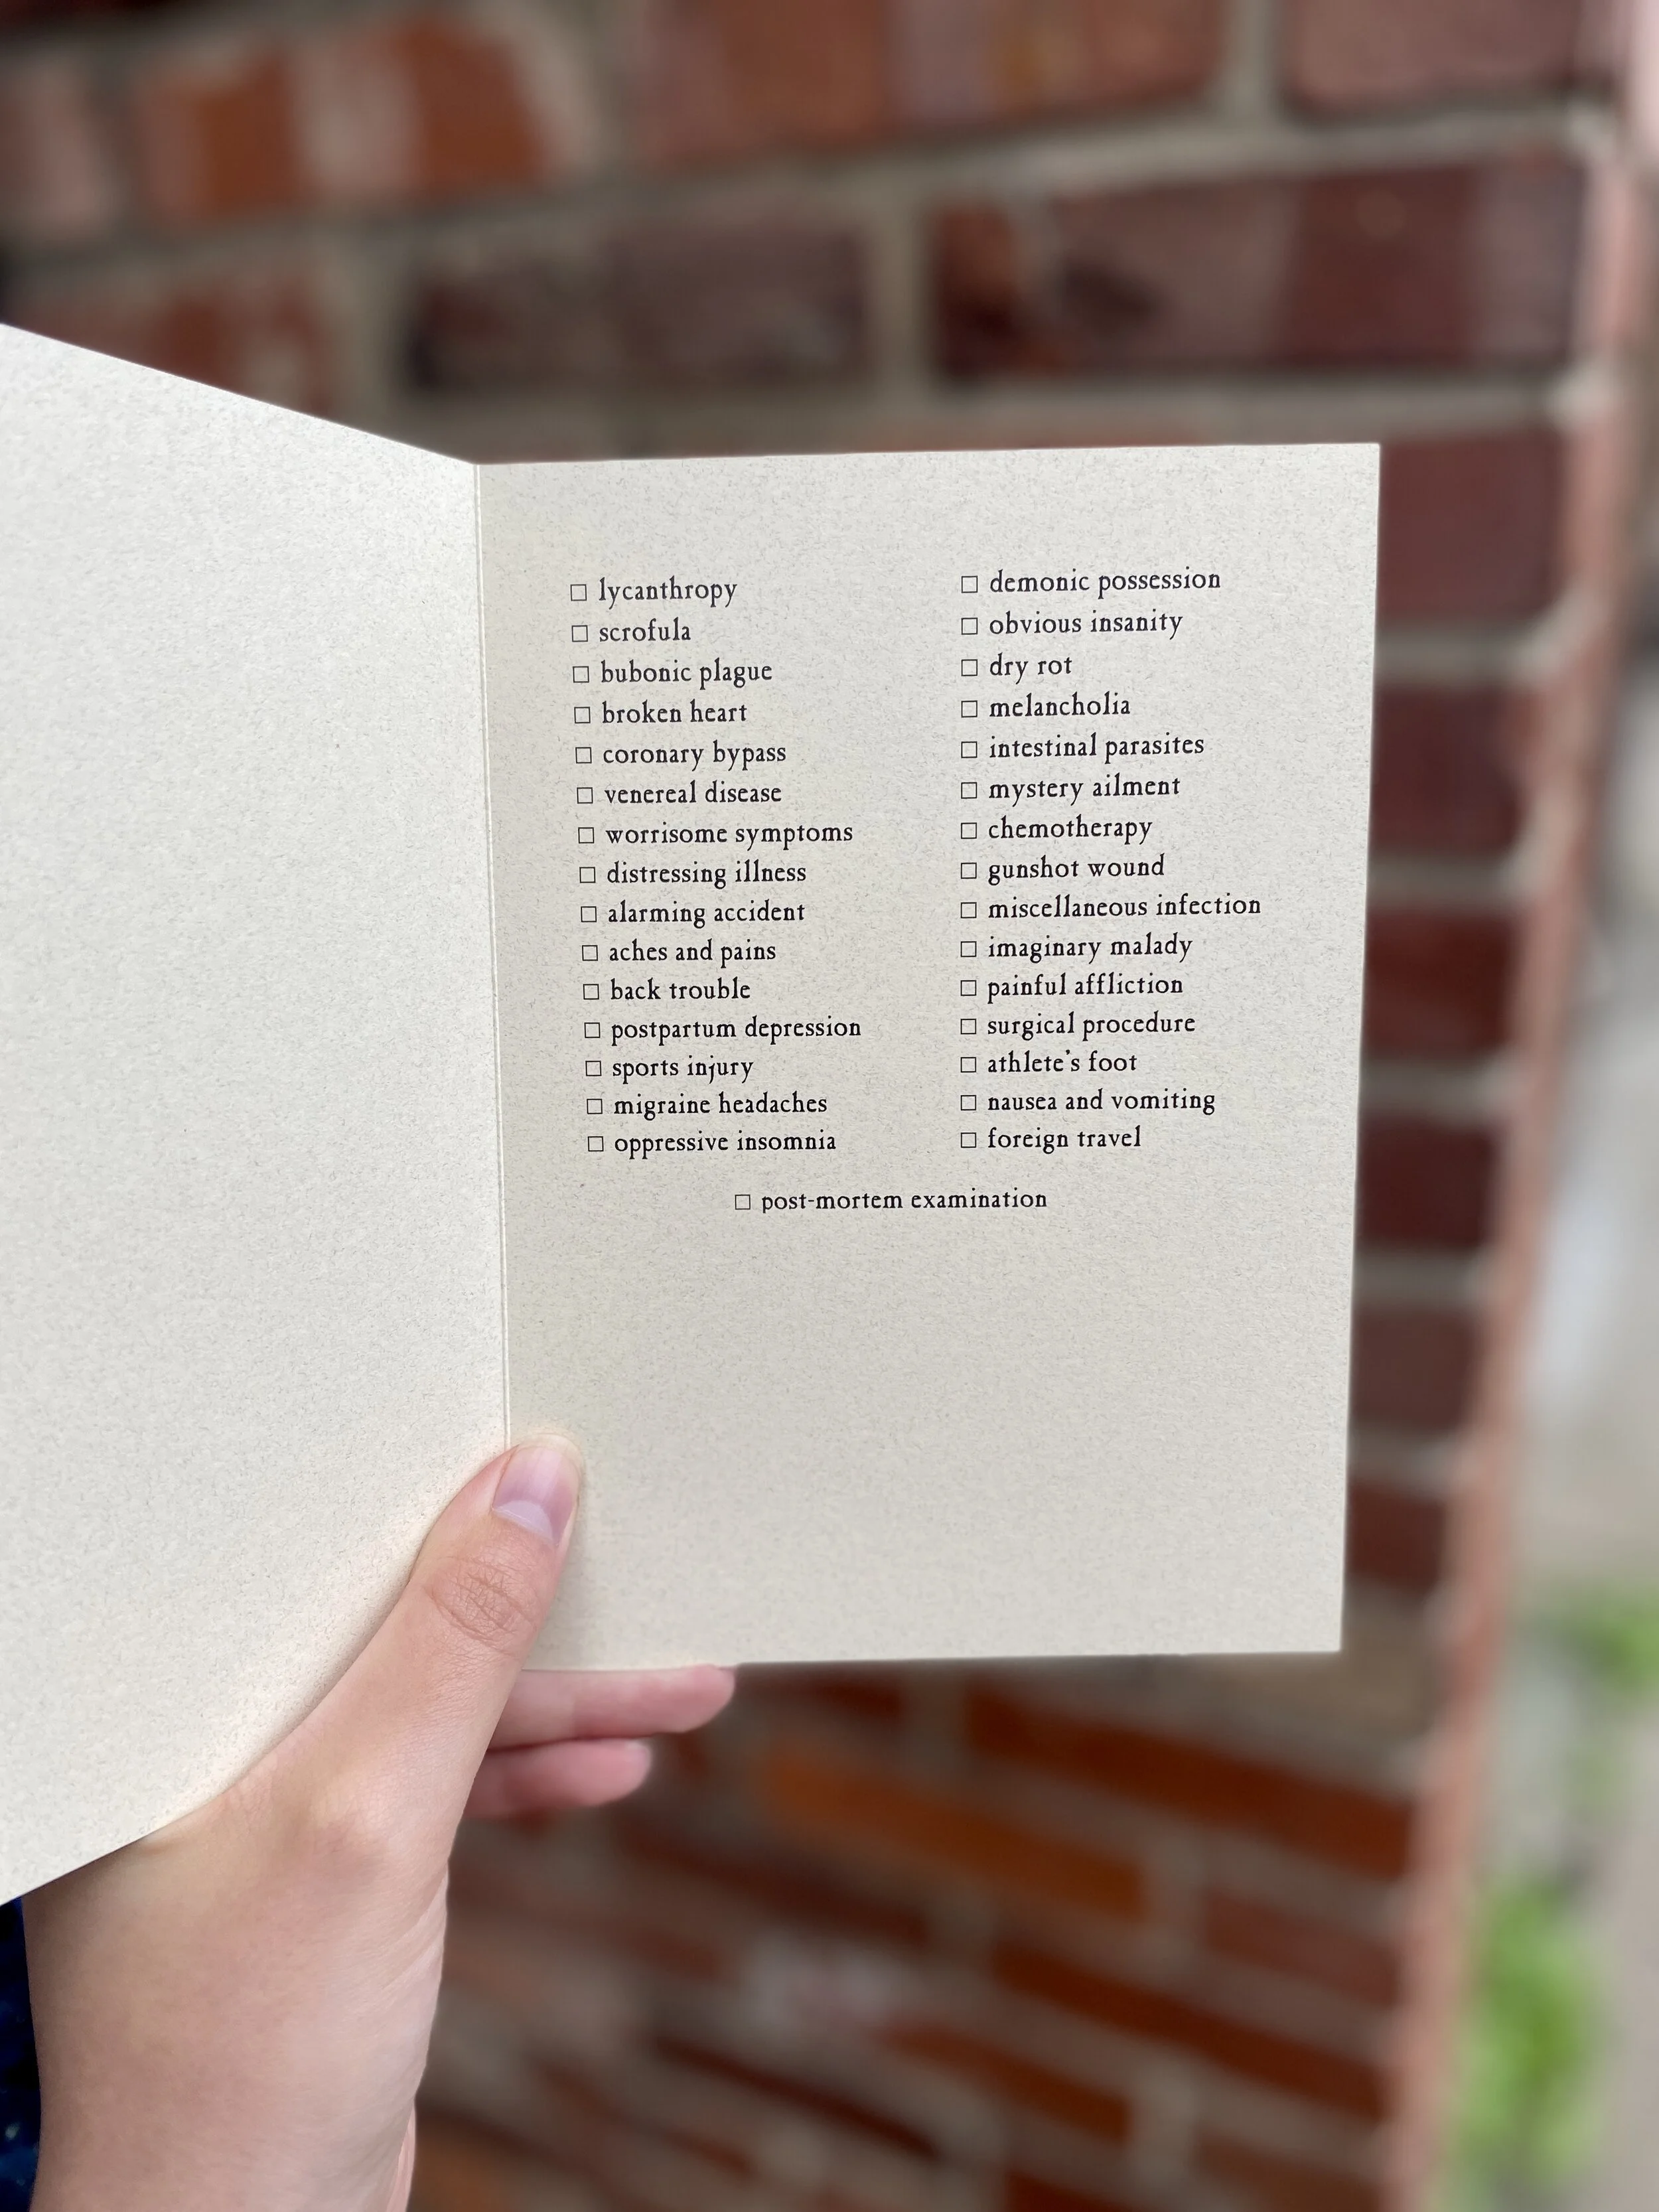 ☐ lycanthropy
☐ scrofula
☐ bubonic plague
☐ broken heart
☐ coronary bypass
☐ venereal disease
☐ worrisome symptoms
☐ distressing illness
☐ alarming accident
☐ aches and pains
☐ back trouble
☐ postpartum depression
☐ sports injury
☐ migraine headaches
☐ oppressive insomnia
☐ demonic possession
☐ obvious insanity
☐ dry rot
☐ melancholia
☐ intestinal parasites
☐ mystery ailment
☐ chemotherapy
☐ gunshot wound
☐ miscellaneous infection
☐ imaginary malady
☐ painful affliction
☐ surgical procedure
☐ athlete's foot
☐ nausea and vomiting
☐ foreign travel
☐ post-mortem examination